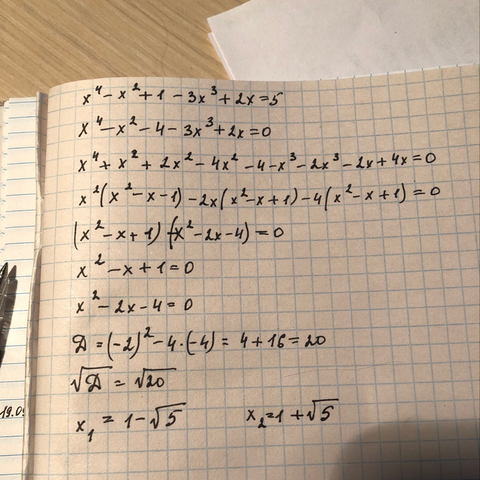 x⁴ - x² + 1 - 3x³ + 2x = 5
x⁴ - x² - 4 - 3x³ + 2x = 0
x⁴ + x² + 2x² - 4x² - 4 - x³ - 2x³ - 2x + 4x = 0
x²(x² - x - 1) - 2x(x² - x + 1) - 4(x² - x + 1) = 0
(x² - x + 1)(x² - 2x - 4) = 0
x² - x + 1 = 0
x² - 2x - 4 = 0
D = (-2)² - 4·(-4) = 4 + 16 = 20
√D = √20
x₁ = 1 - √5 x₂ = 1 + √5